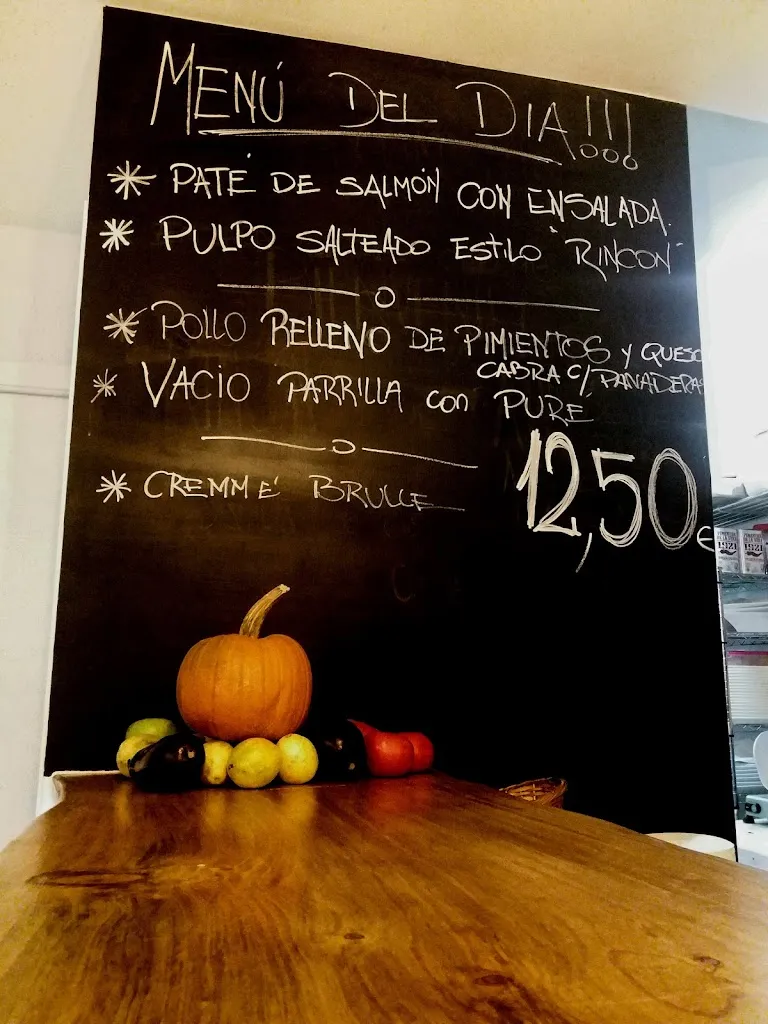 MENÚ DEL DIA!!!
* PATÉ DE SALMÓN CON ENSALADA.
* PULPO SALTEADO ESTILO "RINCON"
—o—
* POLLO RELLENO DE PIMIENTOS y QUESO
CABRA C/ PANADERAS
* VACIO PARRILLA con PURÉ
—o—
* CREMMÉ BRULLE
12,50€
1921 1921